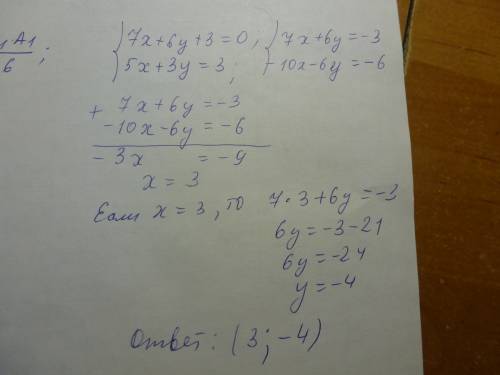 1A1
6 ;
{7x+6y+3=0, {7x+6y=-3
{5x+3y=3; {-10x-6y=-6
+ 7x+6y=-3
-10x-6y=-6
-3x = -9
x = 3
Если x = 3, то 7·3+6y=-3
6y=-3-21
6y=-24
y=-4
Ответ: (3; -4)